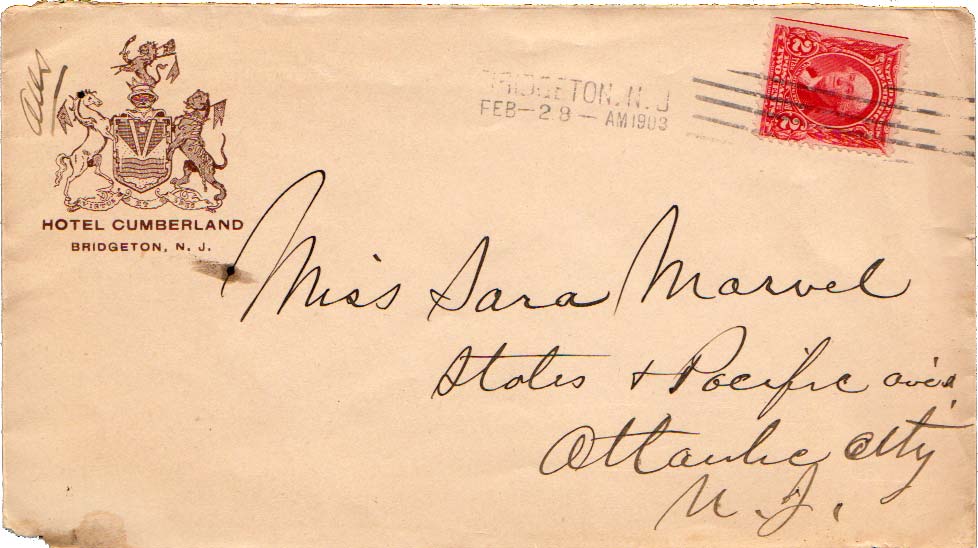 HOTEL CUMBERLAND
BRIDGETON, N. J.
BRIDGETON, N. J
FEB-28-AM1903
2 2
Miss Sara Marvel
States & Pacific aves,
Atlantic City
N. J.